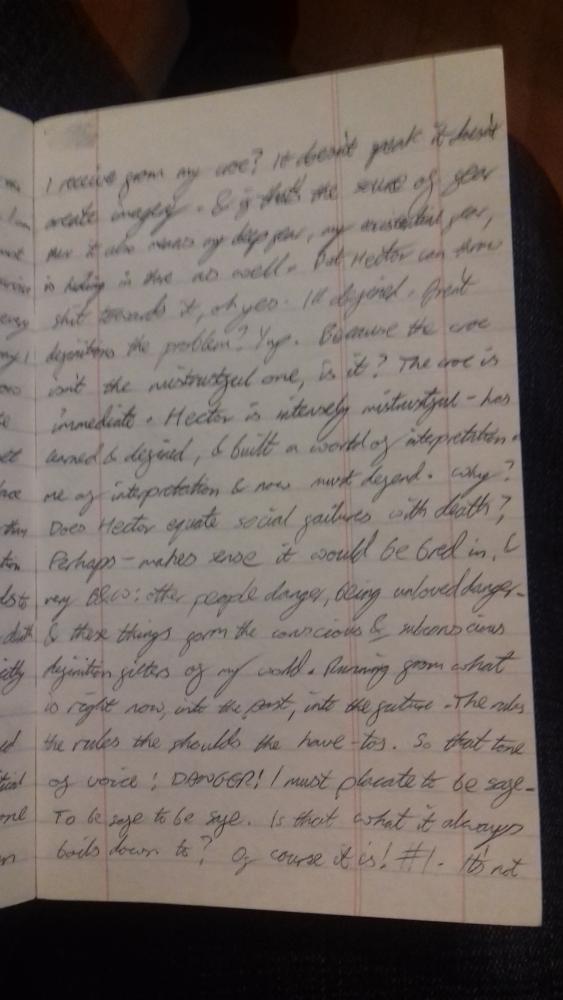 I receive from my core? It doesn't speak it doesn't
create imagery. & if that's the source of fear
then it also means my deep fear, my existential fear,
is hiding in there as well. But Hector can throw
shit towards it, oh yes. Ill defined.
definitions the problem? Yup. Because the core
isn't the mistrustful one, is it? The core is
immediate. Hector is intensely mistrustful - has
earned & defined, & built a world of interpretation.
me of interpretation & now must defend. Why?
Does Hector equate social failures with death?
Perhaps - makes sense it would be bred in.
very B&W: other people danger, being unloved danger.
& these things form the conscious & subconscious
definition filters of my world. Running from what
is right now, into the past, into the future. The rules
the rules the shoulds the have-tos. So that tone
of voice! DANGER! I must placate to be safe.
To be safe to be safe. Is that what it always
boils down to? Of course it is! #1. It's not